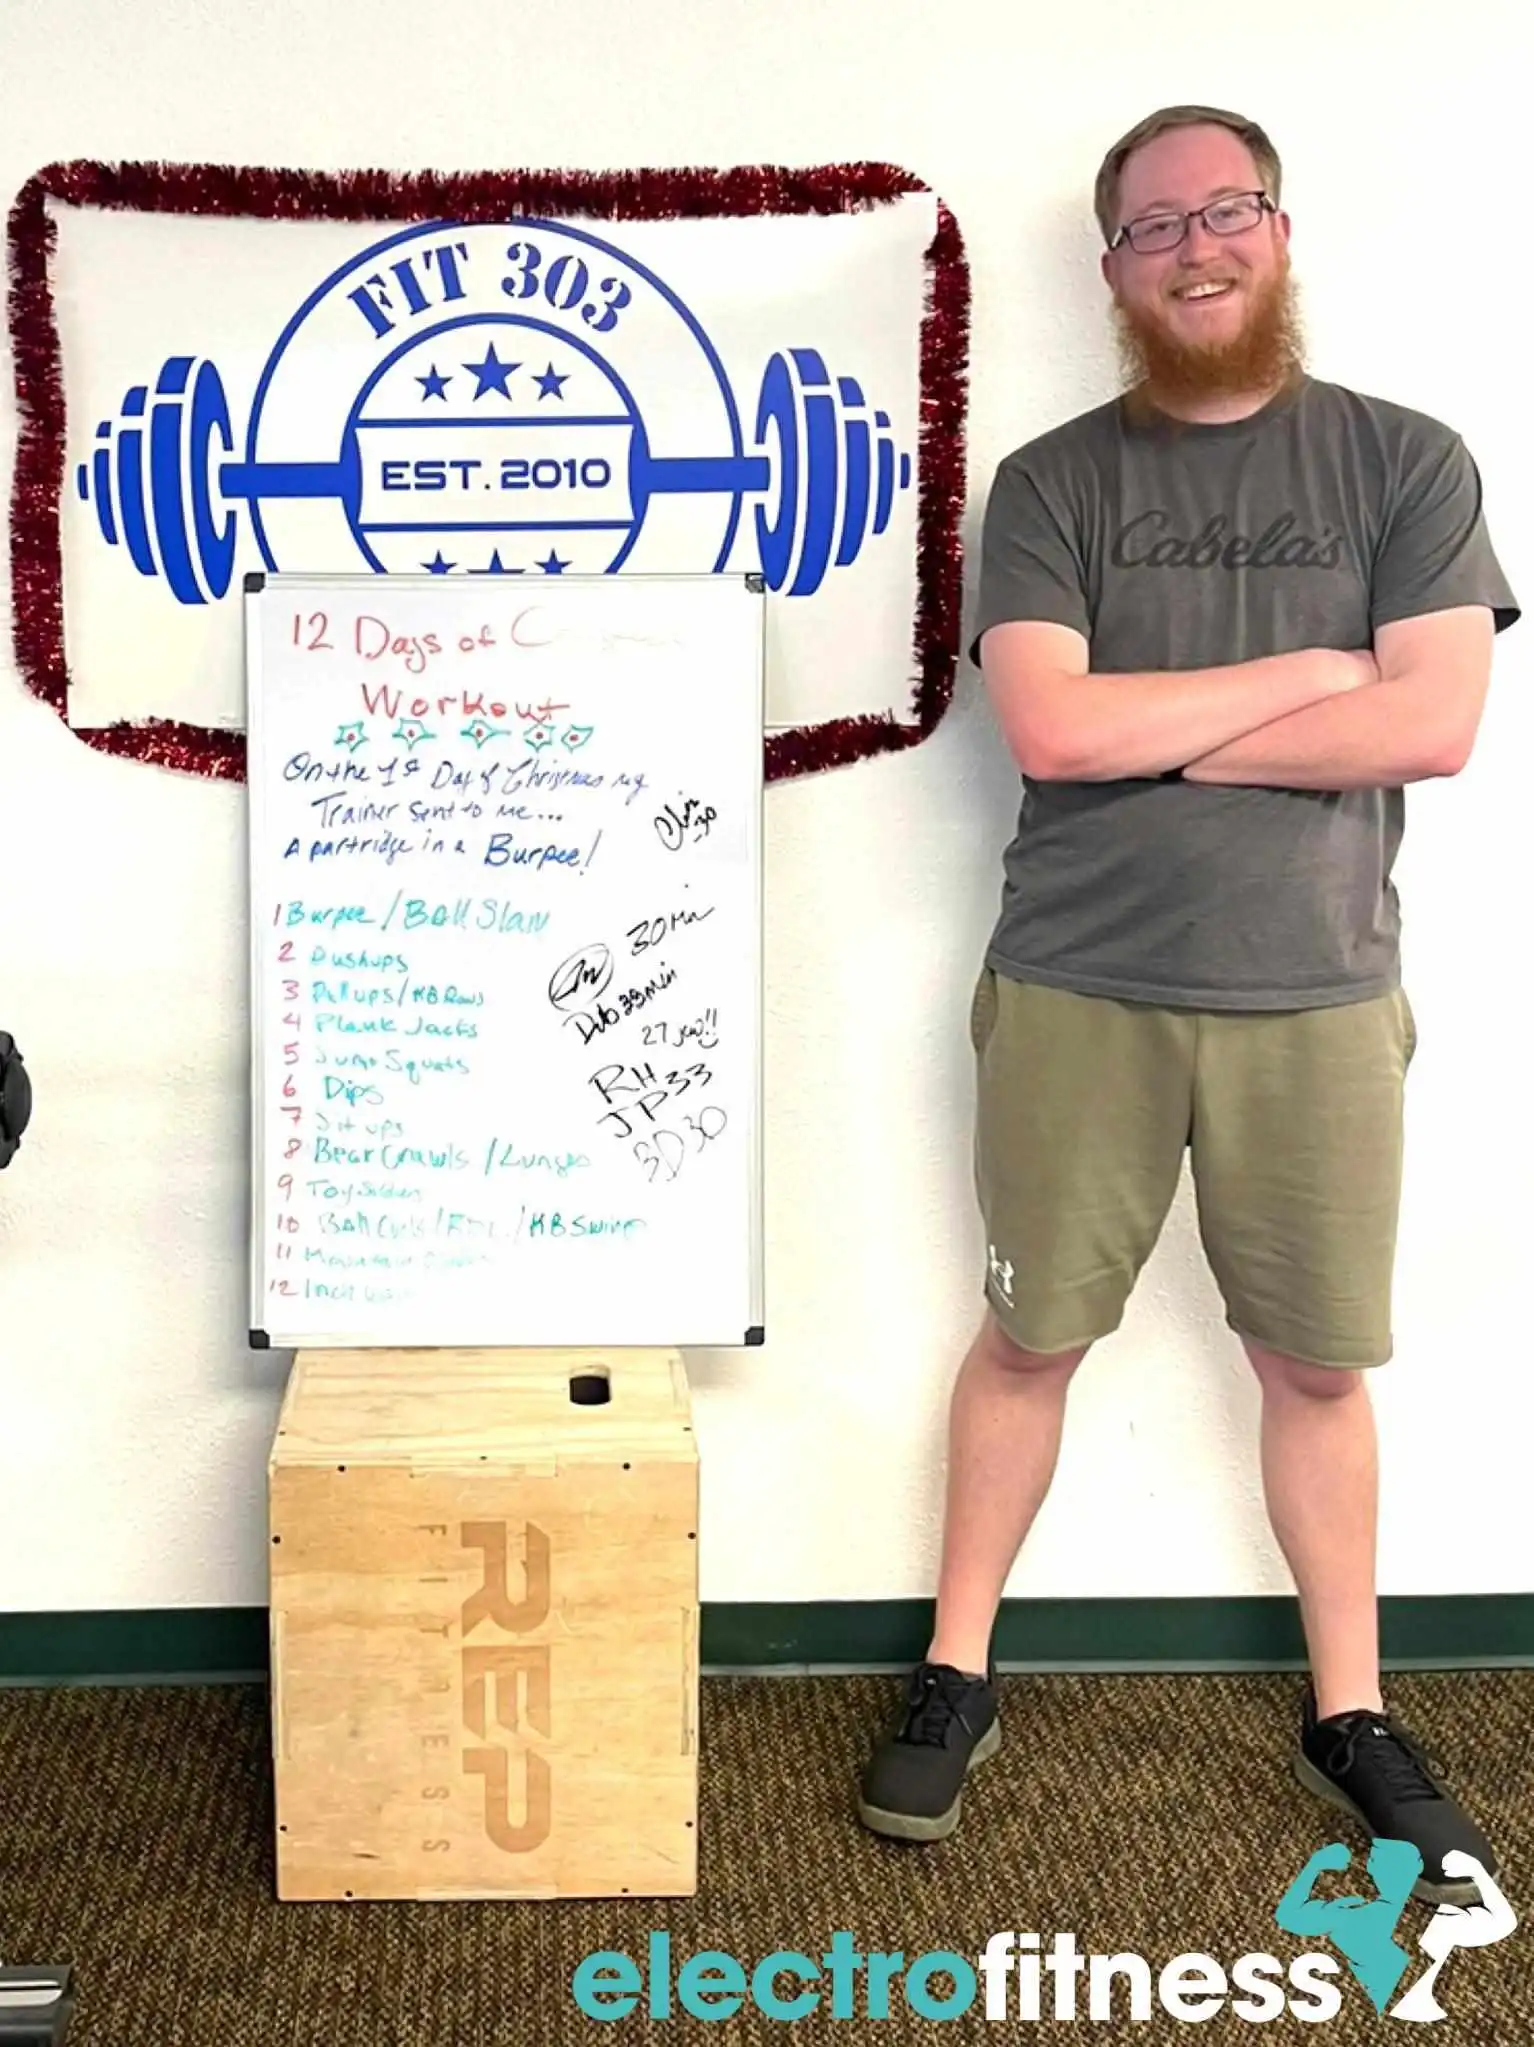 FIT 303
EST. 2010
12 Days of C
Workout
On the 1st Day of Christmas my
Trainer sent to me...
A partridge in a Burpee!
1 Burpee / Ball Slam
2 Pushups
3 Pullups / KB Rows
4 Plank Jacks
5 Jump Squats
6 Dips
7 Sit ups
8 Bear Crawls / Lunges
9 Toy Soldiers
10 Ball Curls / / KB Swing
11 Mountain
12 Inch
30
30 Min
38 min
27 !!
RH
JP 33
BD 30
Cabela's
REP
FITNESS
electrofitness